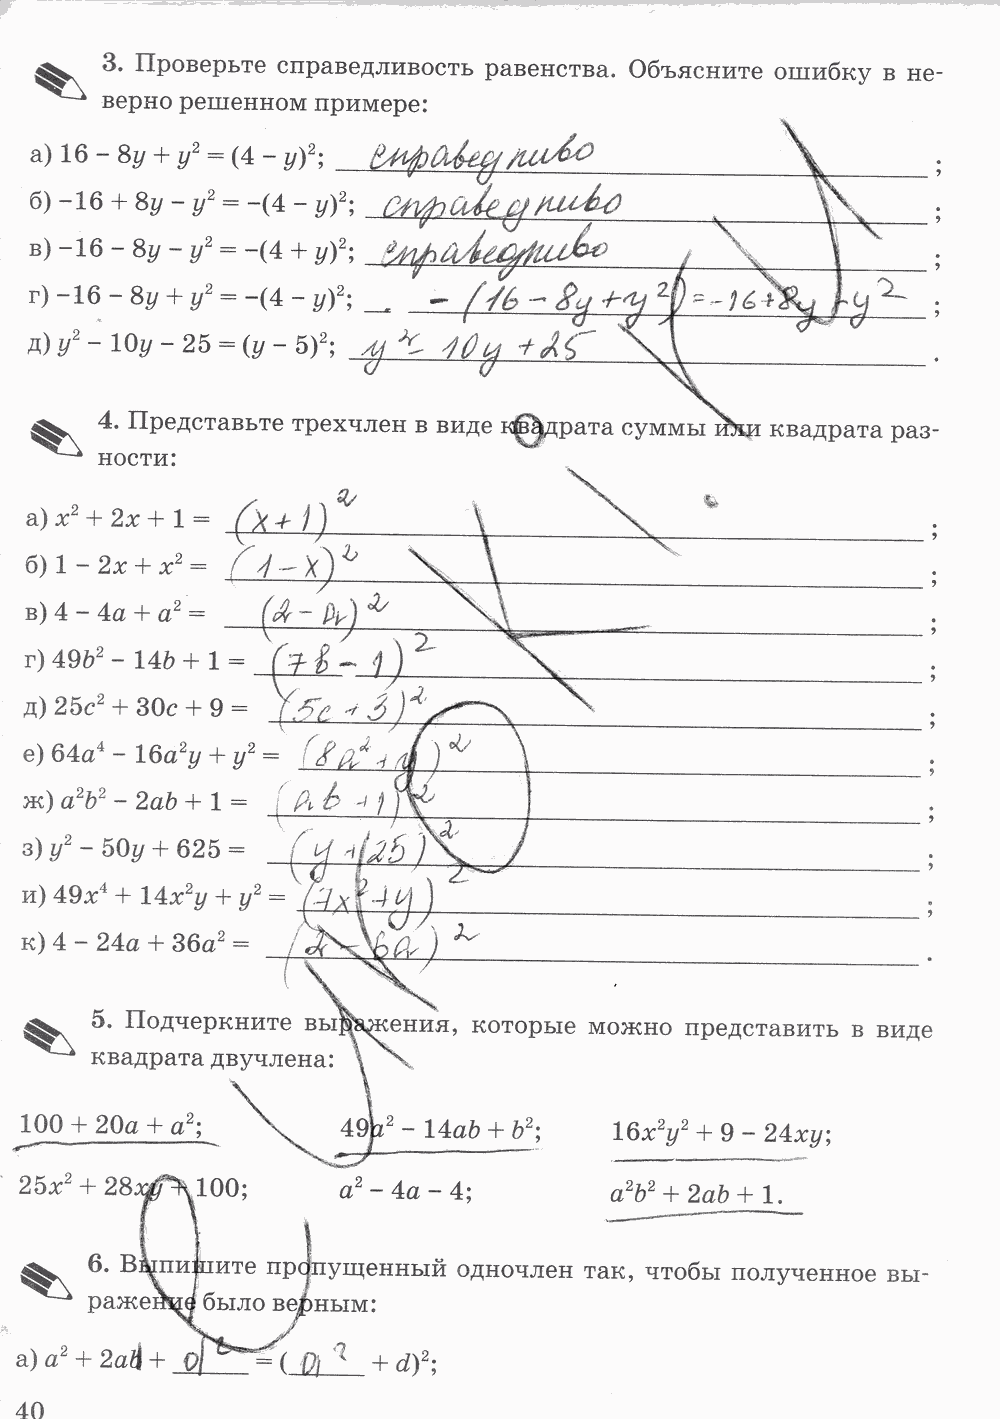 3. Проверьте справедливость равенства. Объясните ошибку в не-
верно решенном примере:
а) 16 − 8y + y² = (4 − y)²; справедливо ;
б) −16 + 8y − y² = −(4 − y)²; справедливо ;
в) −16 − 8y − y² = −(4 + y)²; справедливо ;
г) −16 − 8y + y² = −(4 − y)²; − (16 − 8y + y²) = −16 + 8y − y² ;
д) y² − 10y − 25 = (y − 5)²; y² − 10y + 25 .
4. Представьте трехчлен в виде квадрата суммы или квадрата раз-
ности:
а) x² + 2x + 1 = (x + 1)² ;
б) 1 − 2x + x² = (1 − x)² ;
в) 4 − 4a + a² = (2 − a)² ;
г) 49b² − 14b + 1 = (7b − 1)² ;
д) 25c² + 30c + 9 = (5c + 3)² ;
е) 64a⁴ − 16a²y + y² = (8a² + y)² ;
ж) a²b² − 2ab + 1 = (ab + 1)² ;
з) y² − 50y + 625 = (y + 25)² ;
и) 49x⁴ + 14x²y + y² = (7x² + y)² ;
к) 4 − 24a + 36a² = (2 − 6a)² .
5. Подчеркните выражения, которые можно представить в виде
квадрата двучлена:
100 + 20a + a²; 49a² − 14ab + b²; 16x²y² + 9 − 24xy;
25x² + 28xy + 100; a² − 4a − 4; a²b² + 2ab + 1.
6. Выпишите пропущенный одночлен так, чтобы полученное вы-
ражение было верным:
а) a² + 2ad + d² = (a² + d)²;
40